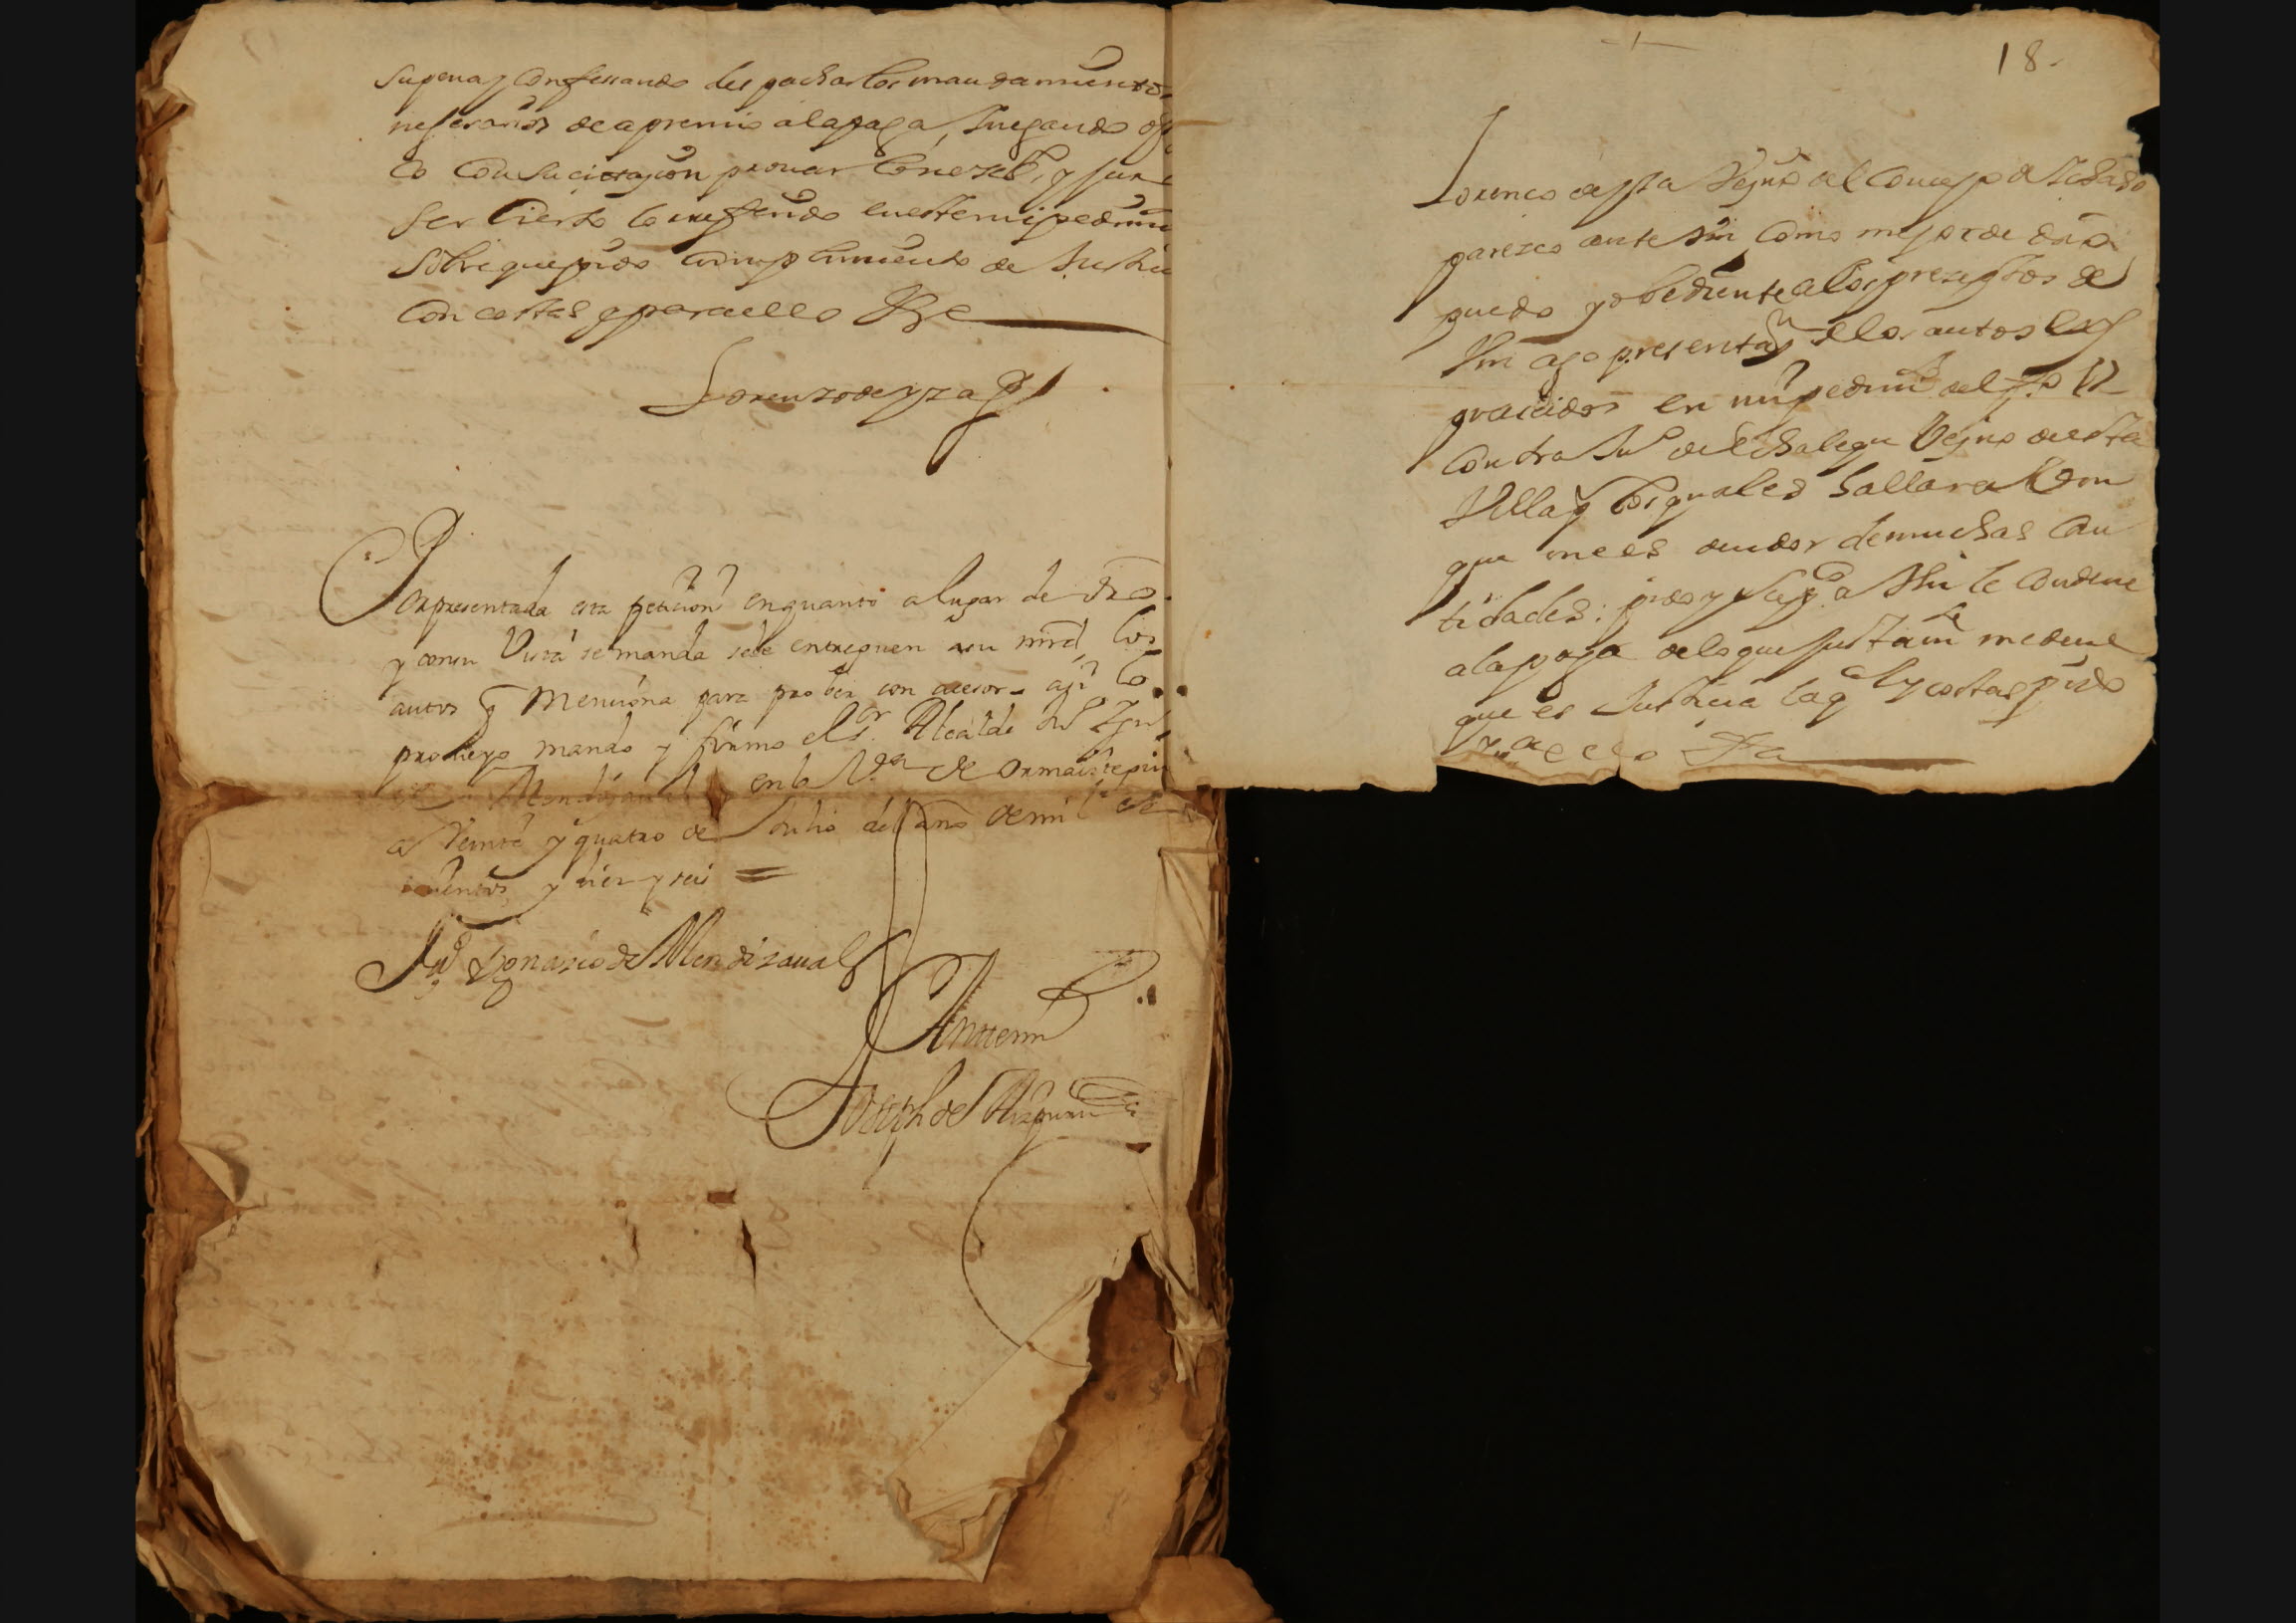 su pena, y confessando despachar los mandamientos
nesesarios de apremio a la paga, y negando ofres
co con su citazion provar lo neses.º, y juro
ser cierto lo referido en este mi pedimi.
sobre que pido cumplimiento de justicia
con costas y para ello &c
Lorenzo de yza
Por presentada esta petizion en quanto a lugar de dro
y con su vista se manda se le entreguen a su mrd los
autos q menciona para probeer con asesor asi lo
probeyo mando y firmo el S.r Alcalde Ju.º Ygn.
de Mendizaual en la V.a de ormaiztegui
a Veinte y quatro de Julio del año de mil sete
cientos y diez y seis =
Ju.º Ygnazio de Mendizaual
Antemi
Joseph de
18.
Lorenco de yza Vezino del Concejo de
paresco ante Vm como mejor de dro
puedo y obediente a los preceptos de
Vm ago presentaz.on de los autos
en mi pedim.to del
contra Ju.º de Echalequ Vezino de esta
Villa y por quales hallara Vm
que me es deudor de muchas can
tidades: pido y sup.co a Vm le condene
a la paga de lo que justam.te me deue
que es Justicia la q.al y costas pido
y p.a ello &a